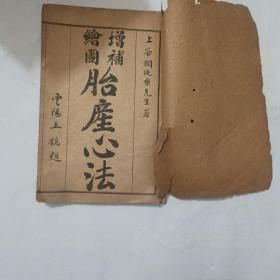 上谷閻純璽先生著
增補
繪圖
胎產心法
雲陽王鶴題